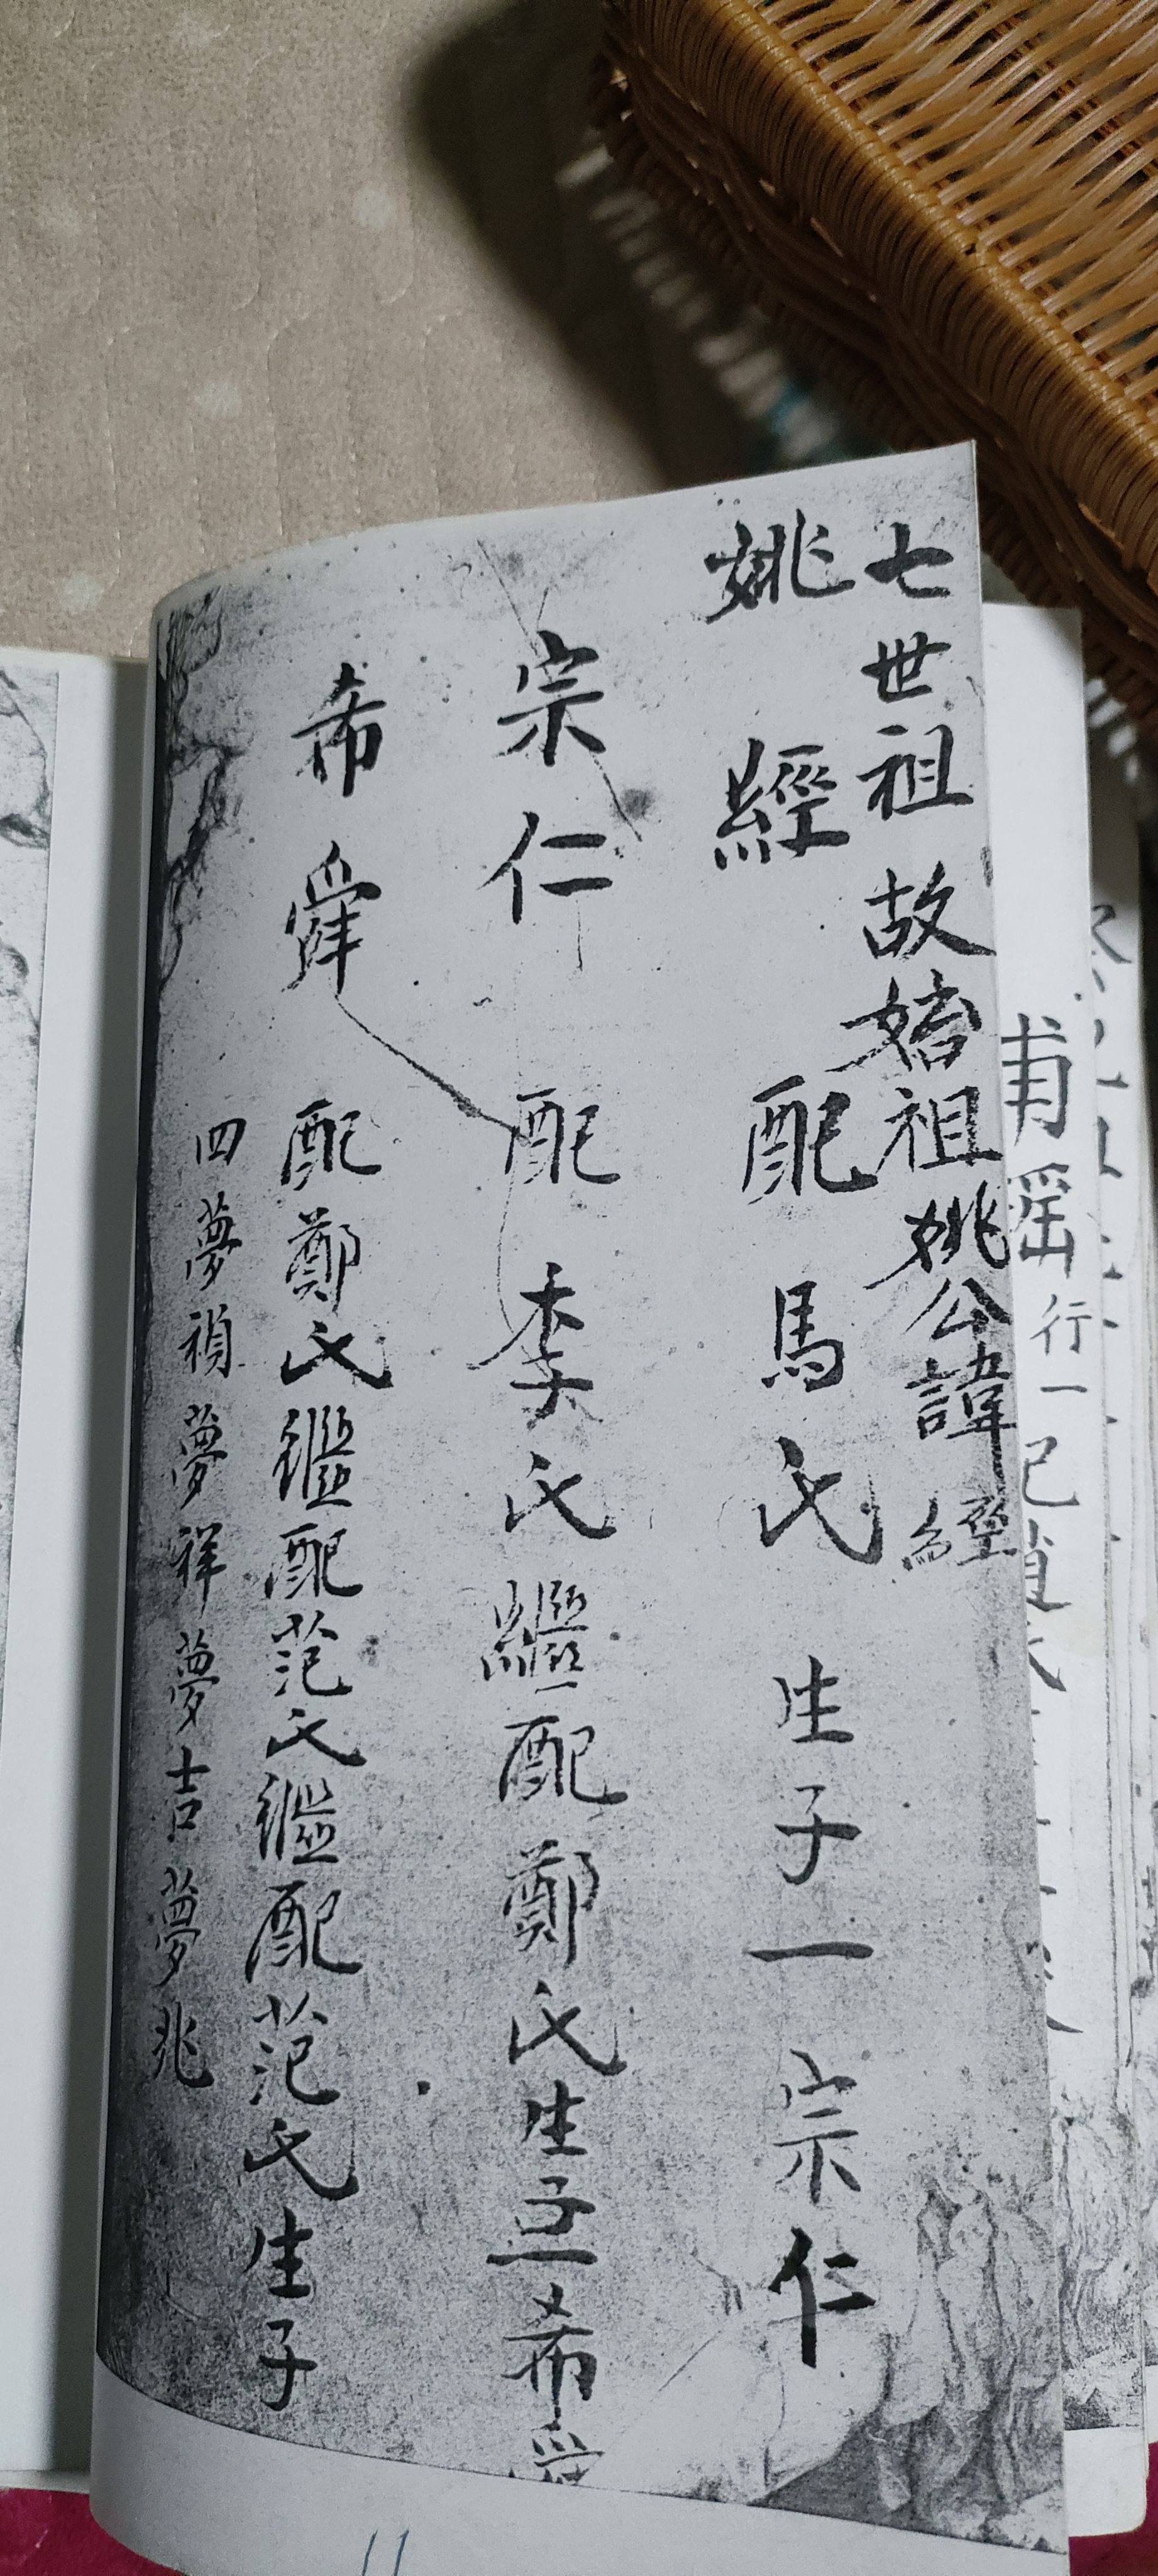 七世祖故始祖姚公諱經
姚經配馬氏生子一宗仁
宗仁配李氏繼配鄭氏生子一希舜
希舜配鄭氏繼配范氏繼配范氏生子
四夢禎夢祥夢吉夢兆
行一
11